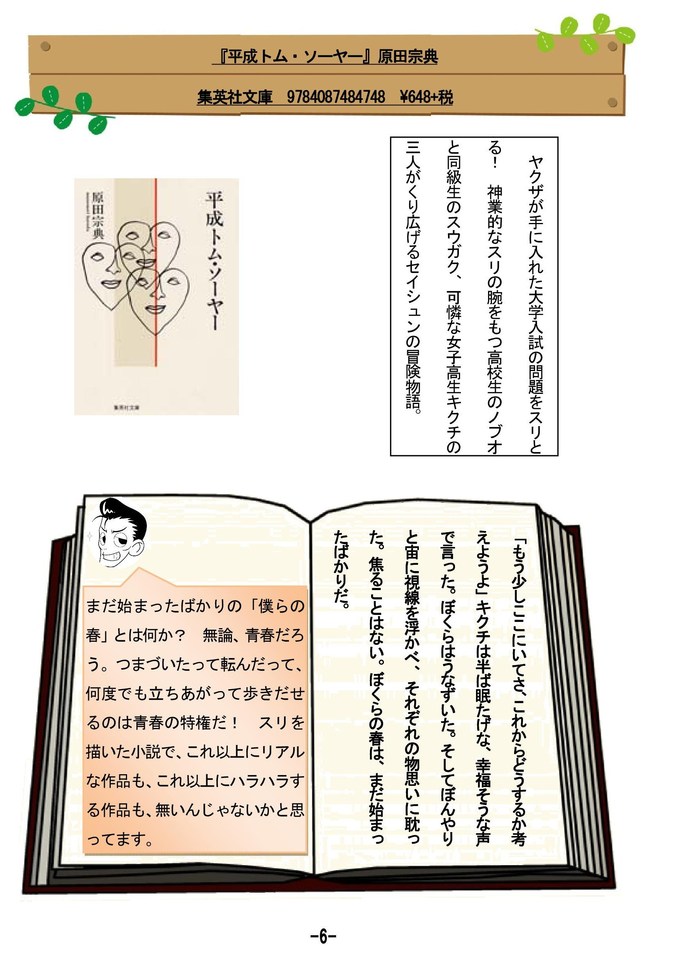 『平成トム・ソーヤー』原田宗典
集英社文庫　9784087484748　¥648+税
ヤクザが手に入れた大学入試の問題をスリと
る！　神業的なスリの腕をもつ高校生のノブオ
と同級生のスウガク、可憐な女子高生キクチの
三人がくり広げるセイシュンの冒険物語。
平成トム・ソーヤー
原田宗典
集英社文庫
「もう少しここにいてさ、これからどうするか考
えようよ」キクチは半ば眠たげな、幸福そうな声
で言った。ぼくらはうなずいた。そしてぼんやり
と宙に視線を浮かべ、それぞれの物思いに耽っ
た。焦ることはない。ぼくらの春は、まだ始まっ
たばかりだ。
まだ始まったばかりの「僕らの
春」とは何か？　無論、青春だろ
う。つまづいたって転んだって、
何度でも立ちあがって歩きだせ
るのは青春の特権だ！　スリを
描いた小説で、これ以上にリアル
な作品も、これ以上にハラハラす
る作品も、無いんじゃないかと思
ってます。
-6-